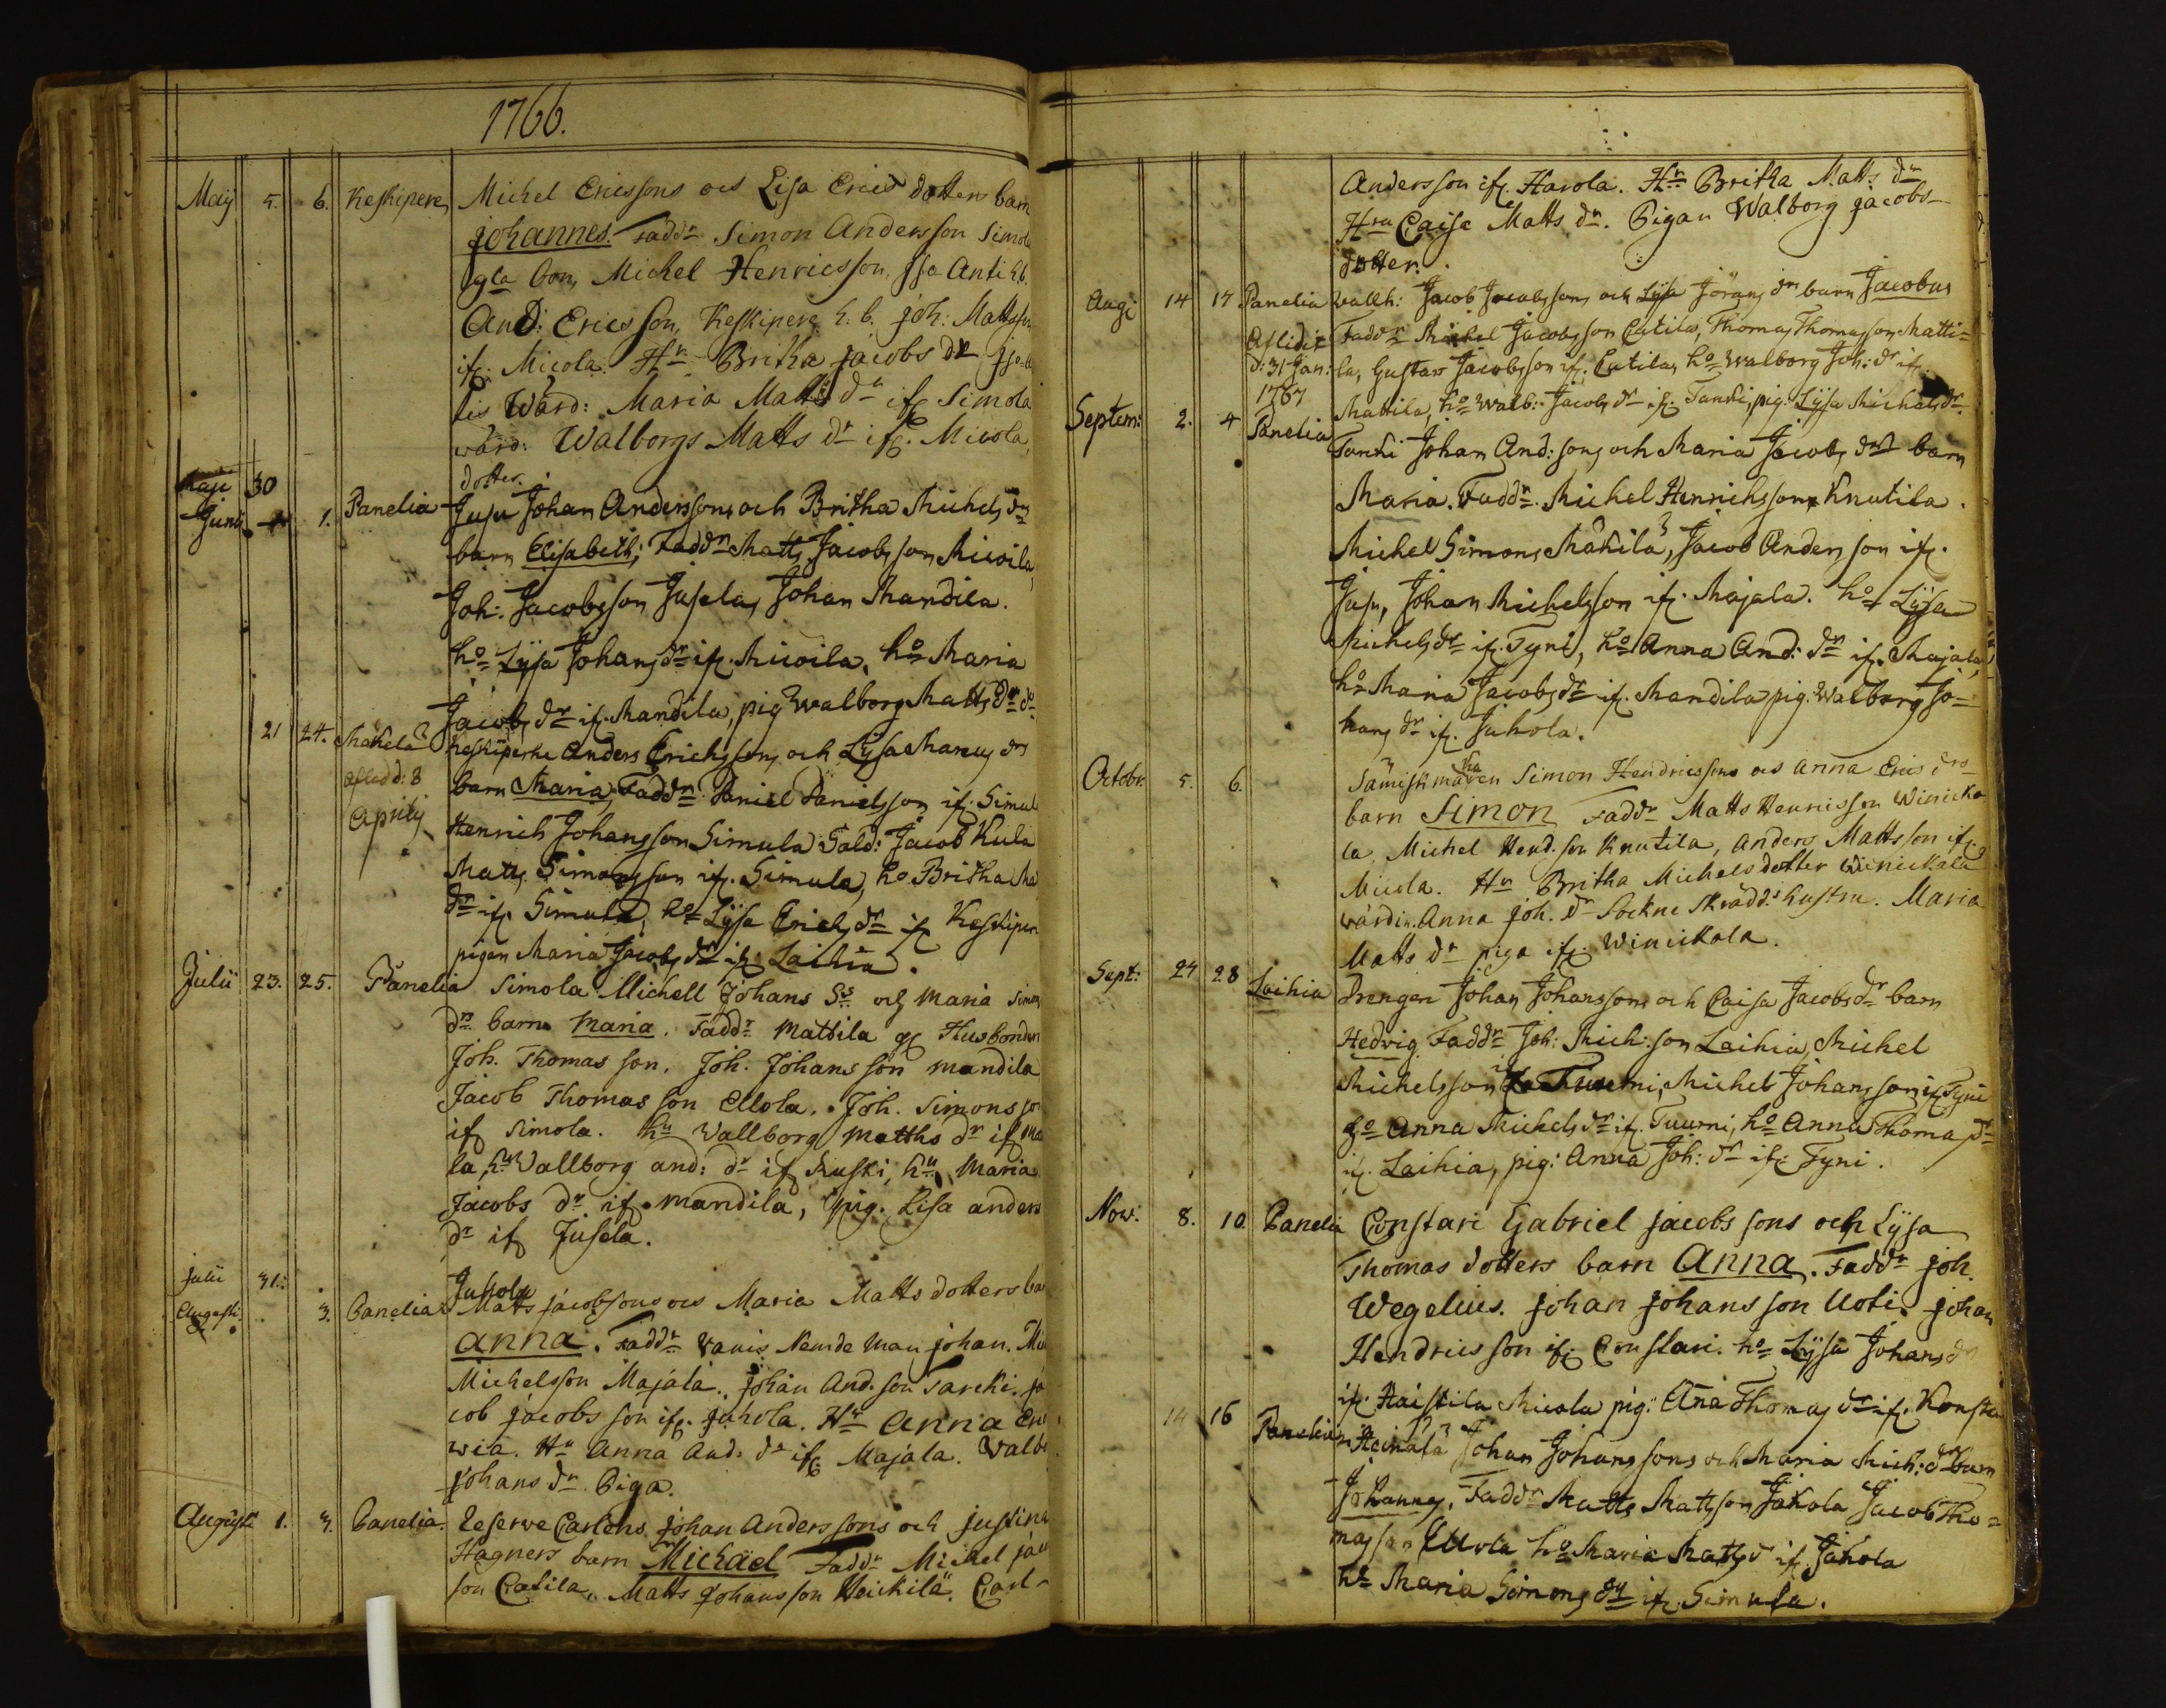 1766.
Maij 5. 6. Keskipere Michel Ericssons och Lisa Erics dotters barn
Johannes. Fadd:r Simon Andersson Simola
Michel Henricsson
And: Ericsson, Keskipere h. b. joh: Mattsson
if. Micola. H:u Britha jacobs d:r
Wärd: Maria Matts d:r if Simola
wärd: Walborgs Matts d:r if. Micola,
dotter.
Maji 30
Junii 1. Panelia Jusu Johan Anderssons och Britha Michels d:rs
barn Elisabeth; Fadd:r Matts Jacobsson Micoila,
Joh: Jacobsson Jusela, Johan Mandila.
h:o Lysa Johans d:r if. Micoila, h:o Maria
Jacobs d:r if. Mandila, pig Walborg Matts d:r
21 24. Mäkelä Keskiperhe Anders Erichssons och Lysa Marcus d:rs
afled d: 8 barn Maria, Fadd:r Daniel Danielsson if. Simul
Aprilij Henrich Johansson Simula Sold: Jacob Kula
Matts Simonsson if. Simula, h:o Britha Ma
d:r if. Simula, h:o Lysa Erichs d:r if Keskiper
pigan Maria Jacobs d:r if. Laihia.
Julii 23. 25. Panelia Simola Michell Johans S:s och Maria Simons
d:rs barn Maria. Fadd:r Mattila Husbonden
Joh. Thomas son. Joh. Johans son Mandila
Jacob Thomas son Ellola. Joh. Simons son
if Simola. h:u Wallborg Matths d:r if Ma
la, h:u Wallborg and: d:r if Ruski, h:u Maria
Jacobs d:r if. Mandila, pig. Lisa anders
d:r if Jusela.
julii 31. Juhola
Augusti. 3. Panelia Matts jacobsons ocs Maria Matts dotters ba
Anna. Fadd:r Nemde man johan.
Michelsson Majala. johan And. son Tarcki. ja
cob jacobs son if. juhola. H:u Anna
wia. H:u Anna And: d:r if. Majala. Walb
johans d:r Piga.
Augusti 1. 3. Panelia. Reserve Carlens johan Anderssons och justina
Hagners barn Michael Fadd:r Michel jac
son Catila, Matts johansson Heickilä. Carl
Andersson if. Harola. H:u Britha Matts d:r
H:ru Caisa Matts d:r. Pigan Walborg jacobs
dotter.
Aug: 14 17 Panelia Wallh: Jacob Jacobssons och Lysa Jörans d:rs barn Jacobus
Aflidit Fadd:r Michel Jacobsson Catila, Thomas Thomasson Matti=
d: 31 Jan: la, Gustav Jacobsson if. Catila, h:o Walborg Joh: d:r if.
1767 Mattila, h:o Walb: Jacobs d:r if. Tanki, pig: Lysa Michels d:r
Septem: 2. 4 Panelia Tanki Johan And: sons och Maria Jacobs d:rs barn
Maria. Fadd:r. Michel Henrichsson Knutila.
Michel Simons Mäkilä, Jacob Andersson if.
Jusu, Johan Michelsson if. Majala. h:o Lysa
Michels d:r if. Tyni, h:o Anna And: d:r if. Majala,
h:o Maria Jacobs d:r if. Mandila pig: Walborg Jo=
hans d:r if. Juhola.
Octobr. 5. 6. Simon Hendricssons ocs Anna Erics d:rs
barn Simon Fadd:r Matts Henricsson Winicka
la, Michel Hend. son Knutila, Anders Matts son if.
Micola. H:u Britha Michels dotter Winickala
wärdin. Anna joh. d:r Sockne Skrädd:s hustru. Maria
Matts d:r piga if. Winickala.
Sept: 24 28 Laihia Drengen Johan Johanssons och Caisa Jacobs d:r barn
Hedvig Fadd:r Joh: Mich: son Laihia, Michel
Michelsson if Tuurni, Michel Johansson if Tyni
h:o Anna Michels d:r if. Tuurni, h:o Anna Thomas d:r
if. Laihia, pig: Anna Joh: d:r if. Tyni.
Nov. 8. 10 Panelia Constari Gabriel jacobs sons och Lysa
Thomas dotters barn Anna. Fadd:r joh.
Wegelius. johan johans son Uoti. johan
Hendricsson if. Constari. h:o Lysa Johans d:r
if. Haistila Micola pig: Ana Thomas d:r if. Konsta
14 16 Panelia Heinälä Johan Johanssons och Maria Mich: d:rs barn
Johannes, Fadd:r Matts Mattsson Jakola Jacob Tho=
masson Ellola h:o Maria Matts d:r if. Jakola
h:o Maria Simons d:r if. Simula.